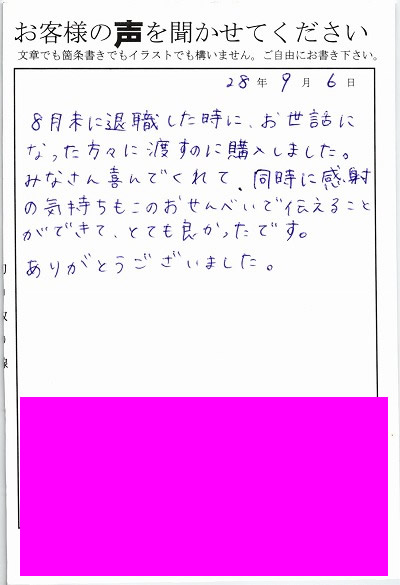 お客様の声を聞かせてください
文章でも箇条書きでもイラストでも構いません。ご自由にお書き下さい。
28年 9月 6日
8月末に退職した時に、お世話に
なった方々に渡すのに購入しました。
みなさん喜んでくれて、同時に感射
の気持ちもこのおせんべいで伝えること
ができて、とても良かったです。
ありがとうございました。